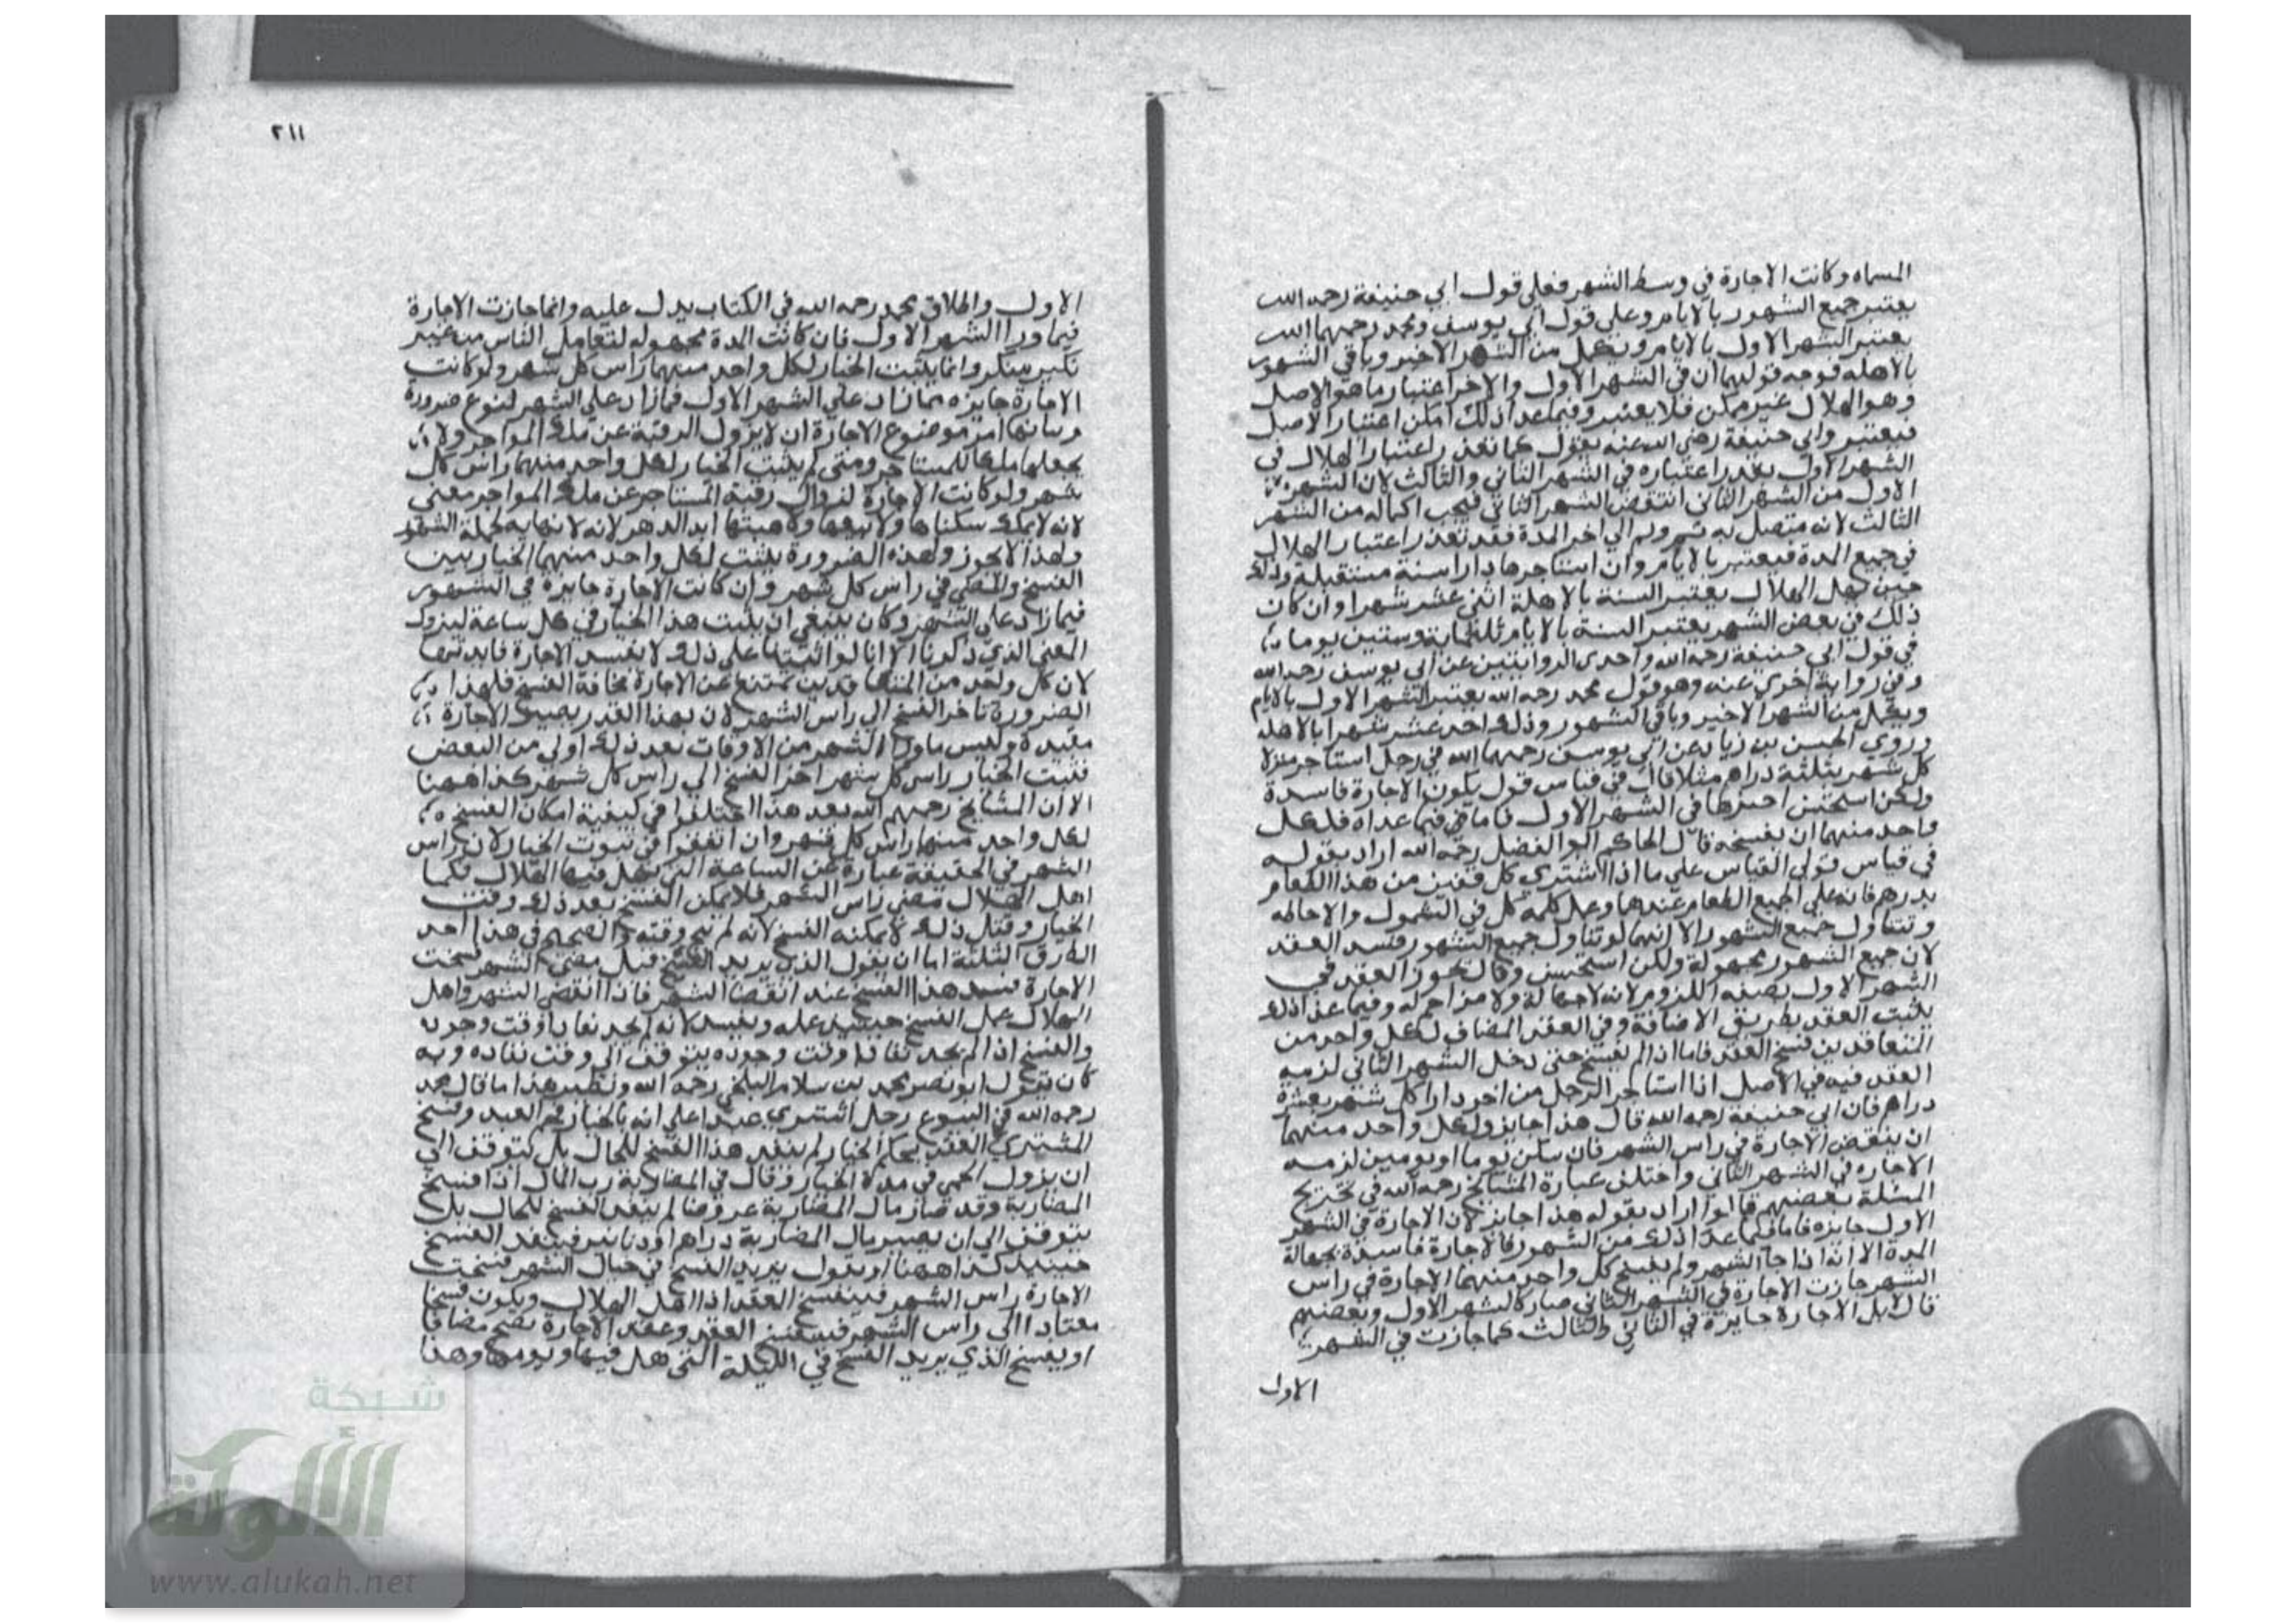 المسماه وكانت الاجارة في وسط الشهر فعلى قول ابي حنيفة رحمه الله
يعتبر جميع الشهور بالايام وعلى قول ابي يوسف ومحمد رحمهما الله
يعتبر الشهر الاول بالايام ويكمل من الشهر الاخير وباقي الشهور
بالاهله فوجه قولهما ان في الشهر الاول والاخر اعتبار ما هو الاصل
وهو الهلال غير ممكن فلا يعتبر وفيما عدا ذلك امكن اعتبار الاصل
فيعتبر وابي حنيفة رضي الله عنه يقول كما تعذر اعتبار الهلال في
الشهر الاول يعذر اعتباره في الشهر الثاني والثالث لان الشهر
الاول من الشهر الثاني انتقض الشهر الثاني فيجب اكماله من الشهر
الثالث لانه متصل به ثم وثم الي اخر المدة فقد تعذر اعتبار الهلال
في جميع المدة فيعتبر بالايام وان استاجرها دارا سنة مستقبلة وذلك
حين يهل الهلال يعتبر السنة بالاهلة اثنى عشر شهرا وان كان
ذلك في بعض الشهر يعتبر السنة بالايام ثلثماية وستين يوما
في قول ابي حنيفة رحمه الله واحدى الروايتين عن ابي يوسف رحمه الله
وفي رواية اخرى عنه وهو قول محمد رحمه الله يعتبر الشهر الاول بالايام
ويكمل من الشهر الاخير وباقي الشهور وذلك احد عشر شهرا بالاهله
وروي الحسن بن زياد عن ابي يوسف رحمهما الله في رجل استاجر منزلا
كل شهر بثلثة دراهم مثلا قال في قياس قول يكون الاجارة فاسدة
ولكن استحسن اجيزها في الشهر الاول فاما في فيما عداه فلكل
واحد منهما ان يفسخه قال الحاكم ابو الفضل رحمه الله اراد بقوله
في قياس قولي القياس على ما اذا اشتري كل قفيز من هذا الطعام
بدرهم فانه على جميع الطعام عندهما وعمل كلمة كل في الشمول والاحاطه
وتتناول جميع الشهور الا انهما لو تناول جميع الشهور فسد العقد
لان جميع الشهور مجهولة ولكن استحسن وقال يجوز العقد في
الشهر الاول بصفه اللزوم لانه لاجهالة ولا مزاحم له وفيما عدا ذلك
يثبت العقد بطريق الاضافة وفي العقد المضاف لكل واحد من
المتعاقدين فسخ العقد فاما اذا لم يفسخ حتى دخل الشهر الثاني لزمه
العقد فيه في الاصل اذا استاجر الرجل من اخر دارا كل شهر بعشرة
دراهم فان ابي حنيفة رحمه الله قال هذا جايز ولكل واحد منهما
ان ينقض الاجارة في راس الشهر فان سكن يوما او يومين لزمه
الاجاره في الشهر الثاني واختلف عبارة المشايخ رحمه الله في تخريج
المسئلة بعضهم قالوا اراد بقوله هذا جايز لان الاجارة في الشهر
الاول جايزه فاما فيما عدا ذلك من الشهور فالاجارة فاسدة بجهالة
المدة الا انه اذا جا الشهر ولم يفسخ كل واحد منهما الاجارة في راس
الشهر جازت الاجارة في الشهر الثاني صار كالشهر الاول وبعضهم
قال لابل الاجارة جايزة في الثاني والثالث كما جازت في الشهر
الاول
٢١١
الاول واطلاق محمد رحمه الله في الكتاب يدل عليه وانما جازت الاجارة
فيما ورا الشهر الاول فان كانت المدة مجهوله لتعامل الناس من غير
نكير منكر وانما يثبت الخيار لكل واحد منهما راس كل شهر ولو كانت
الاجارة جايزه مما زاد على الشهر الاول فما زاد على الشهر لنوع ضرورة
بيانها امر موضوع الاجارة ان لا يزول الرقبة عن ملك المواجر ولا
يجعلها ملكا للمستاجر ومتى لم يثبت الخيار لكل واحد منهما راس كل
شهر ولو كانت الاجارة لزوال رقبة المستاجر عن ملك المواجر معنى
لانه لا يملك سكناها ولا بيعها ولا هبتها ابد الدهر لانه لا نهايه لجملة الشهور
وهذا لا يجوز ولهذه الضرورة يثبت لكل واحد منهما الخيار بين
الفسخ والمضي في راس كل شهر وان كانت الاجارة جايزة في الشهور
فيما زاد على الشهر وكان ينبغي ان يثبت هذا الخيار في كل ساعة ليزول
المعنى الذي ذكرنا الا انا لو اثبتنا على ذلك لا يفسد الاجارة فايدتها
لان كل واحد من المتعاقدين يمتنع عن الاجارة مخافة الفسخ فلهذا
الضرورة تاخر الفسخ الي راس الشهر لان بهذا القدر يصير الاجارة
مفيدة وليس ماورا الشهر من الاوقات بعد ذلك اولى من البعض
فثبت الخيار راس كل شهر اخر الفسخ الي راس كل شهر كذا ههنا
الا ان المشايخ رحمهم الله بعد هذا اختلفوا في كيفية امكان الفسخ
لكل واحد منهما راس كل شهر وان اتفقوا في ثبوت الخيار لان راس
الشهر في الحقيقة عبارة عن الساعة التي يهل فيها الهلال فكما
اهل الهلال مضى راس الشهر فلا يمكن الفسخ بعد ذلك وقت
الخيار وقبل ذلك لا يمكنه الفسخ لانه لم يج وقته والصحيح في هذا احد
الطرق الثلثة اما ان يقول الذي يريد الفسخ قبل مضي الشهر فسخت
الاجارة فيبد هذا الفسخ عند انقضا الشهر فاذا انقضى الشهر واهل
الهلال عمل الفسخ حينيذ عمله ونفسد لانه لم يجد نفاذا وقت وجوده
والفسخ اذا لم يجد نفاذا وقت وجوده يتوقف الي وقت نفاده وبه
كان يقول ابو نصر محمد بن سلام البلخي رحمه الله ونظير هذا ما قال محمد
رحمه الله في البيوع رجل اشترى عبدا على انه بالخيار فحم العبد وفسخ
المشتري العقد بحكم الخيار لم ينفذ هذا الفسخ للحال بل يتوقف الي
ان يزول الحمى في مدة الخيار وقال في المضاربة رب المال اذا فسخ
المضاربة وقد صار مال المضاربة عروضا لم ينفذ الفسخ للحال بل
يتوقف الي ان يصير مال المضاربة دراهم او دنانير فينفذ الفسخ
حينيذ كذا ههنا او يقول يريد الفسخ في خيال الشهر فسخت
الاجارة راس الشهر فينفسخ العقد اذا اهل الهلال ويكون فسخا
مضافا الى راس الشهر فينفسخ العقد وعقد الاجارة يصح مضافا
او يفسخ الذي يريد الفسخ في الليلة التي هل فيها ويومها وهذا
شبكة
الألوكة
www.alukah.net